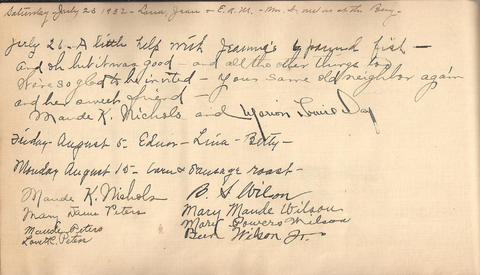 Saturday July 23 1932 - Lina, Jean + E.R.M. - Mr. S. are at the Bay -
July 26 - A little help with Jeanne's 6 pound fish -
And oh but it was good - and all the other things too
We're so glad to be invited - Your same old neighbor again
and her sweet friend -
Maude K. Nichols and Marion Louise Day
Friday August 5 - Ednor - Lina - Betty -
Monday August 15 - Corn & Sausage roast -
Maude K. Nichols B. S. Wilson
Mary Peters Mary Maude Wilson
Maude Peters Mary Powers Wilson
Peters Ben Wilson Jr.